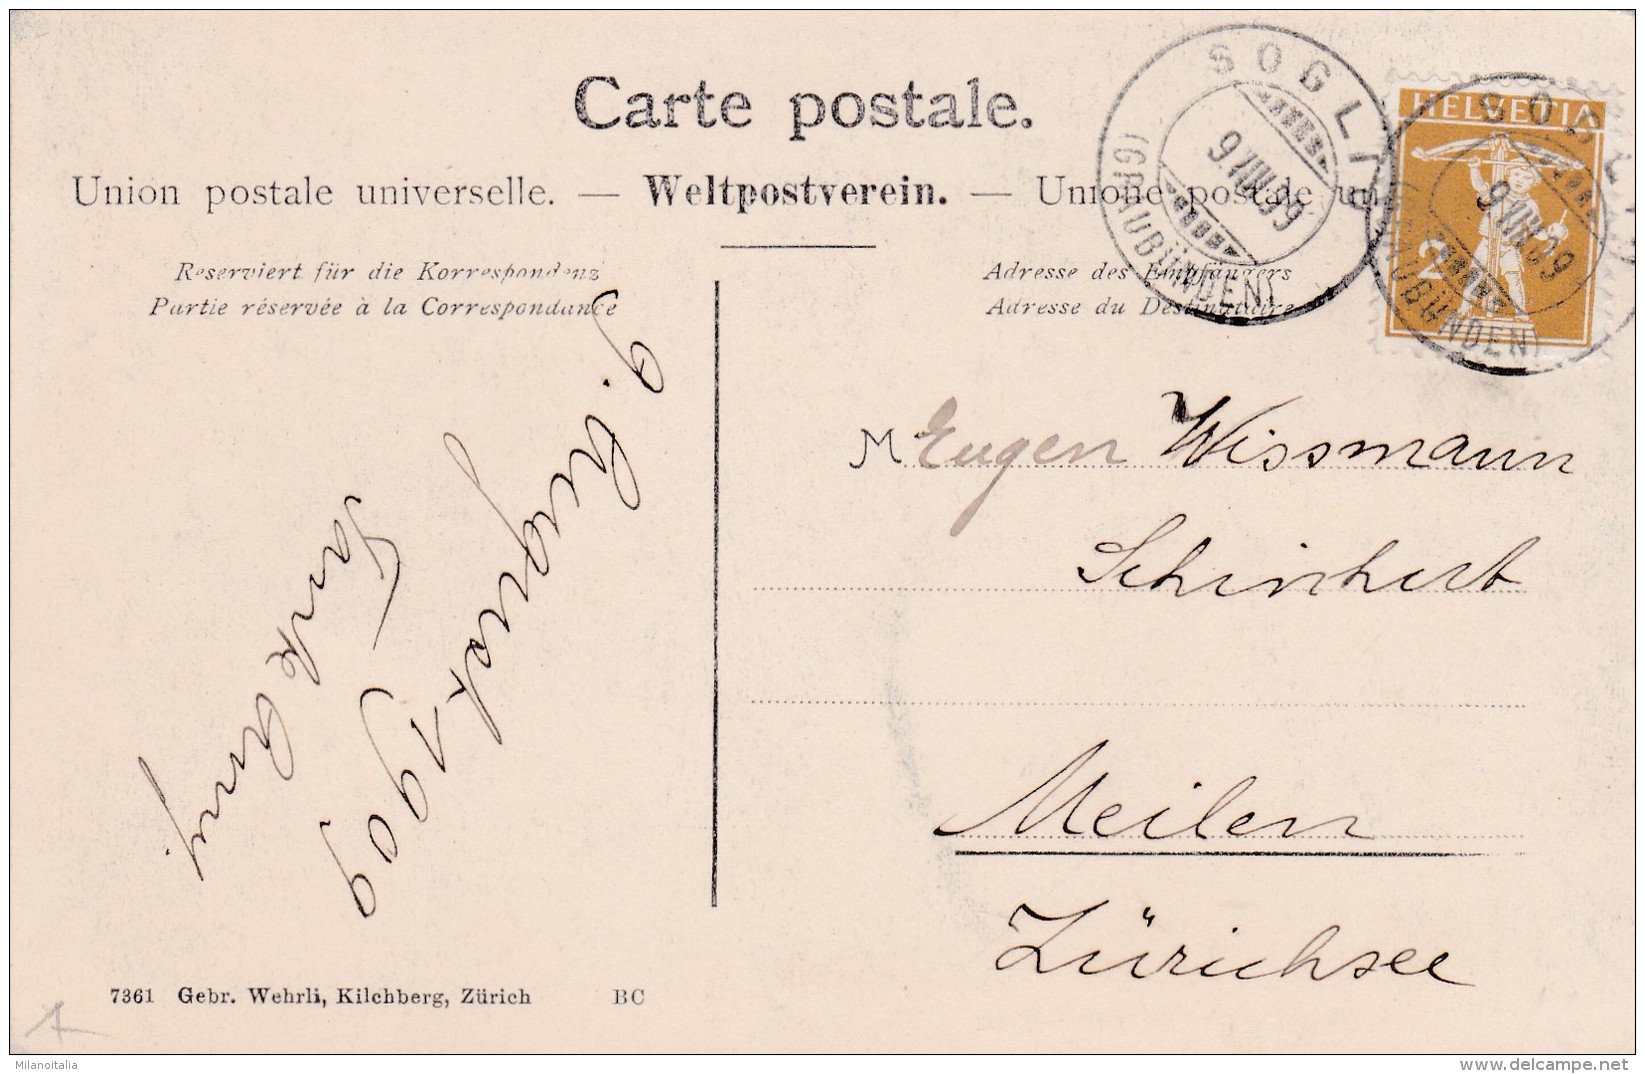 Carte postale.
Union postale universelle. — Weltpostverein. — Unione postale un
Reserviert für die Korrespondenz
Partie réservée à la Correspondance
Adresse des Empfängers
Adresse du Destinataire
SOGLIO
(GRAUBÜNDEN)
9.VIII.09
HELVETIA
2
SOGLIO
(GRAUBÜNDEN)
9.VIII.09
M Eugen Wissmann
Meilen
Zürichsee
9. August 1909
7361 Gebr. Wehrli, Kilchberg, Zürich BC
Milanoitalia
delcampe.net